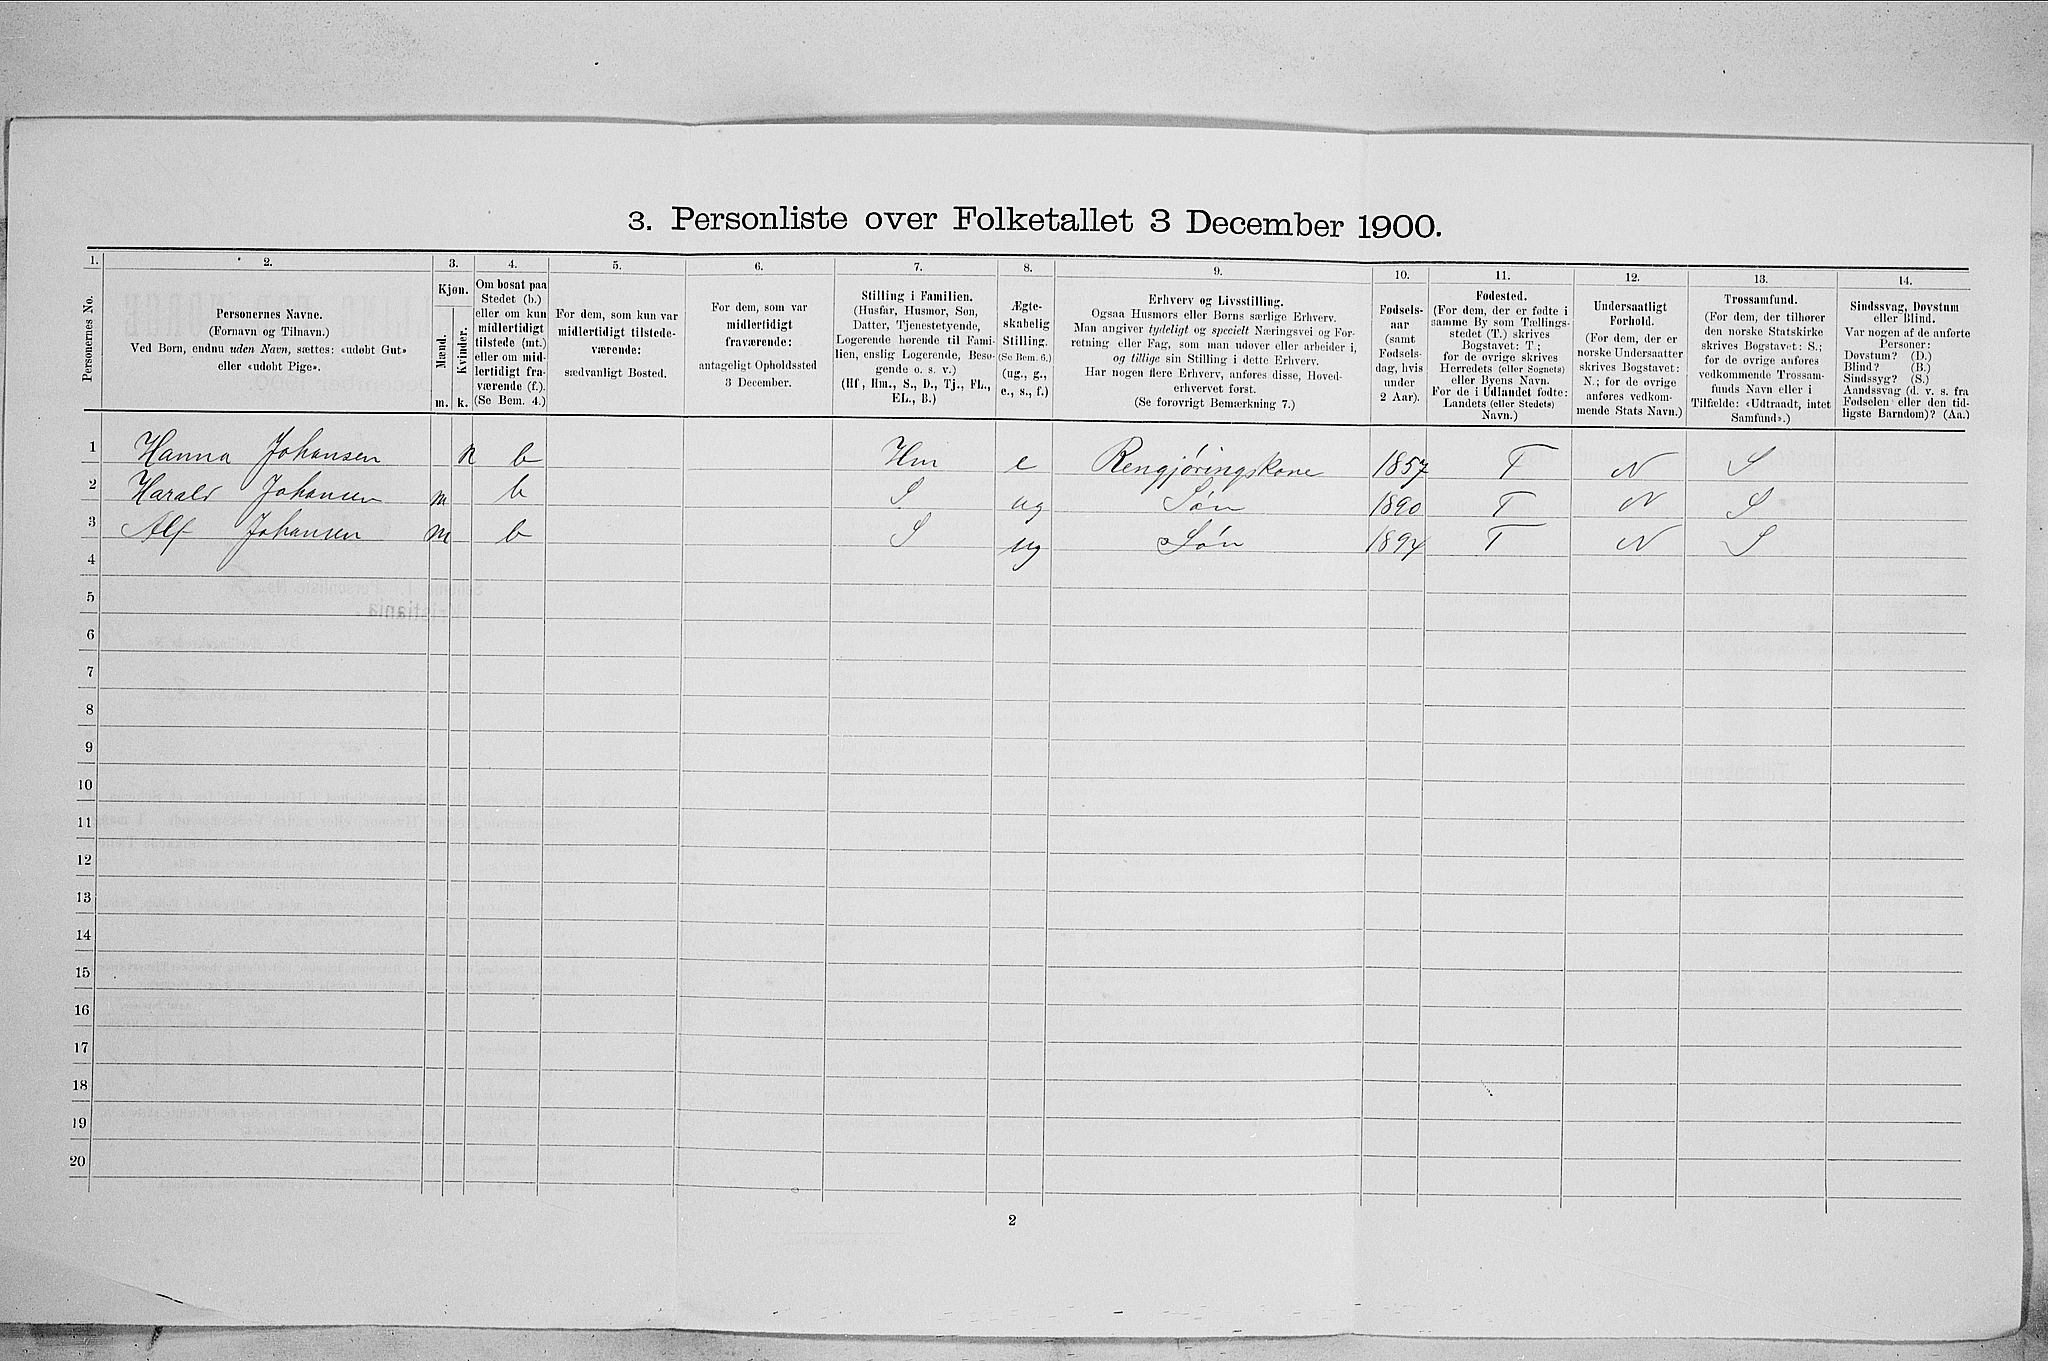 3. Personliste over Folketallet 3 December 1900.
1. 2. 3. 4. 5. 6. 7. 8. 9. 10. 11. 12. 13. 14.
Personernes No.
Personernes Navne.
(Fornavn og Tilnavn.)
Ved Børn, endnu uden Navn, sættes: «udøbt Gut»
eller «udøbt Pige».
Kjøn.
Mænd.
Kvinder.
m. k.
Om bosat paa
Stedet (b.)
eller om kun
midlertidigt
tilstede (mt.)
eller om mid-
lertidigt fra-
værende (f.).
(Se Bem. 4.)
For dem, som kun var
midlertidigt tilstede-
værende:
sædvanligt Bosted.
For dem, som var
midlertidigt
fraværende:
antageligt Opholdssted
3 December.
Stilling i Familien.
(Husfar, Husmor, Søn,
Datter, Tjenestetyende,
Logerende hørende til Fami-
lien, enslig Logerende, Besø-
gende o. s. v.)
(Hf, Hm., S., D., Tj., FL.,
EL., B.)
Ægte-
skabelig
Stilling.
(Se Bem. 6.)
(ug., g.,
e., s., f.)
Erhverv og Livsstilling.
Ogsaa Husmors eller Børns særlige Erhverv.
Man angiver tydeligt og specielt Næringsvei og For-
retning eller Fag, som man udøver eller arbeider i,
og tillige sin Stilling i dette Erhverv.
Har nogen flere Erhverv, anføres disse, Hoved-
erhvervet først.
(Se forøvrigt Bemærkning 7.)
Fødsels-
aar
(samt
Fødsels-
dag, hvis
under
2 Aar).
Fødested.
(For dem, der er fødte i
samme By som Tællings-
stedet (T.) skrives
Bogstavet: T;
for de øvrige skrives
Herredets (eller Sognets)
eller Byens Navn.
For de i Udlandet fødte:
Landets (eller Stedets)
Navn.)
Undersaatligt
Forhold.
(For dem, der er
norske Undersaatter
skrives Bogstavet:
N.; for de øvrige
anføres vedkom-
mende Stats Navn.)
Trossamfund.
(For dem, der tilhører
den norske Statskirke
skrives Bogstavet: S.;
for de øvrige anføres
vedkommende Trossam-
funds Navn eller i
Tilfælde: «Udtraadt, intet
Samfund».)
Sindssvag, Døvstum
eller Blind.
Var nogen af de anførte
Personer:
Døvstum? (D.)
Blind? (B.)
Sindssyg? (S.)
Aandssvag (d. v. s. fra
Fødselen eller den tid-
ligste Barndom)? (Aa.)
1 Hanna Johansen k b Hm e Rengjøringskone 1857 T N S
2 Harald Johansen m b S ug Søn 1890 T N S
3 Alf Johansen m b S ug Søn 1894 T N S
4
5
6
7
8
9
10
11
12
13
14
15
16
17
18
19
20
2